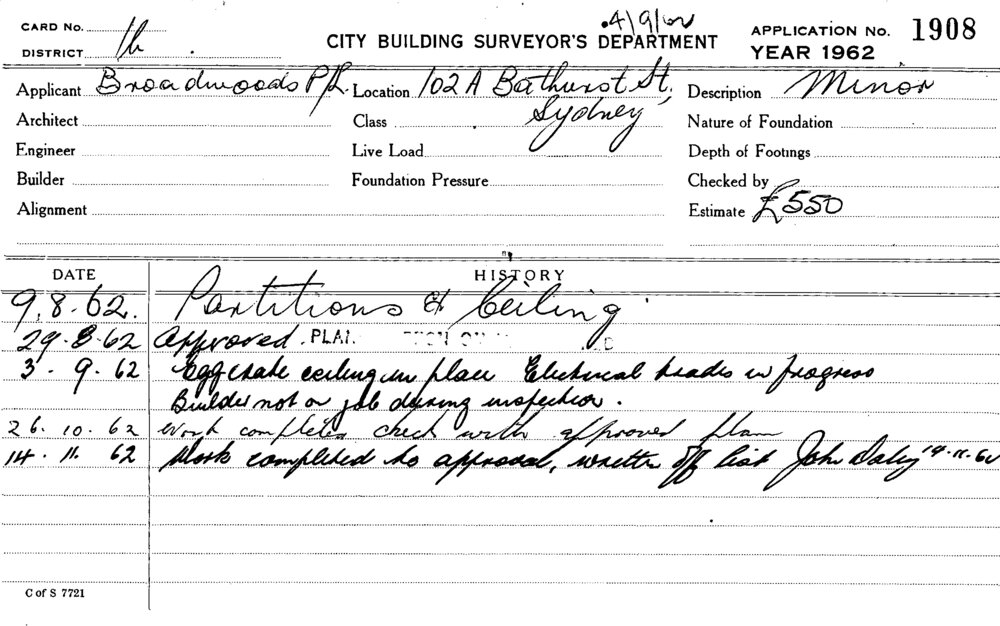 4/9/62
CARD No.
DISTRICT 1b
CITY BUILDING SURVEYOR'S DEPARTMENT
APPLICATION No. 1908
YEAR 1962
Applicant Broadwoods P/L. Location 102A Bathurst St, Description Minor
Sydney
Architect Class Nature of Foundation
Engineer Live Load Depth of Footings
Builder Foundation Pressure Checked by
Alignment Estimate £550
DATE HISTORY
9.8.62. Partitions & Ceiling.
29.8.62 Approved. PLAN
3.9.62 Eggcrate ceiling in place Electrical trades in progress
Builder not on job during inspection.
26.10.62 Work completed check with approved plan
14.11.62 Work completed to approval, written off list John Daley 19.11.62
C of S 7721